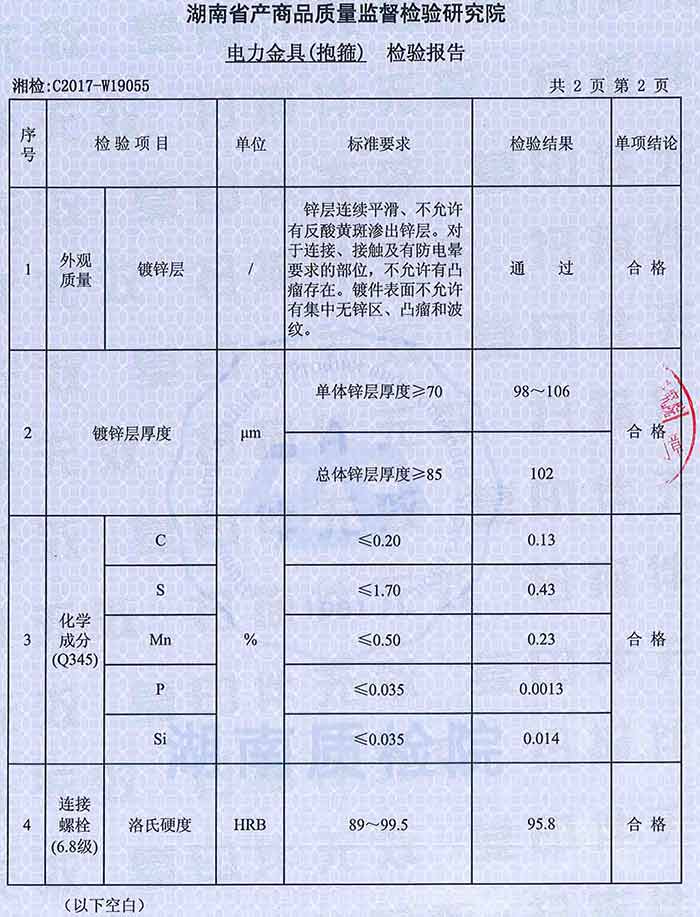 湖南省产商品质量监督检验研究院
电力金具(抱箍) 检验报告
湘检:C2017-W19055 共 2 页 第 2 页
序号 检验项目 单位 标准要求 检验结果 单项结论
1 外观质量 镀锌层 /
锌层连续平滑、不允许
有反酸黄斑渗出锌层。对
于连接、接触及有防电晕
要求的部位，不允许有凸
瘤存在。镀件表面不允许
有集中无锌区、凸瘤和波
纹。
通过 合格
2 镀锌层厚度 μm
单体锌层厚度≥70 98～106
总体锌层厚度≥85 102
合格
3 化学成分(Q345) %
C ≤0.20 0.13
S ≤1.70 0.43
Mn ≤0.50 0.23
P ≤0.035 0.0013
Si ≤0.035 0.014
合格
4 连接螺栓(6.8级) 洛氏硬度 HRB 89～99.5 95.8 合格
(以下空白)
湖南质检院